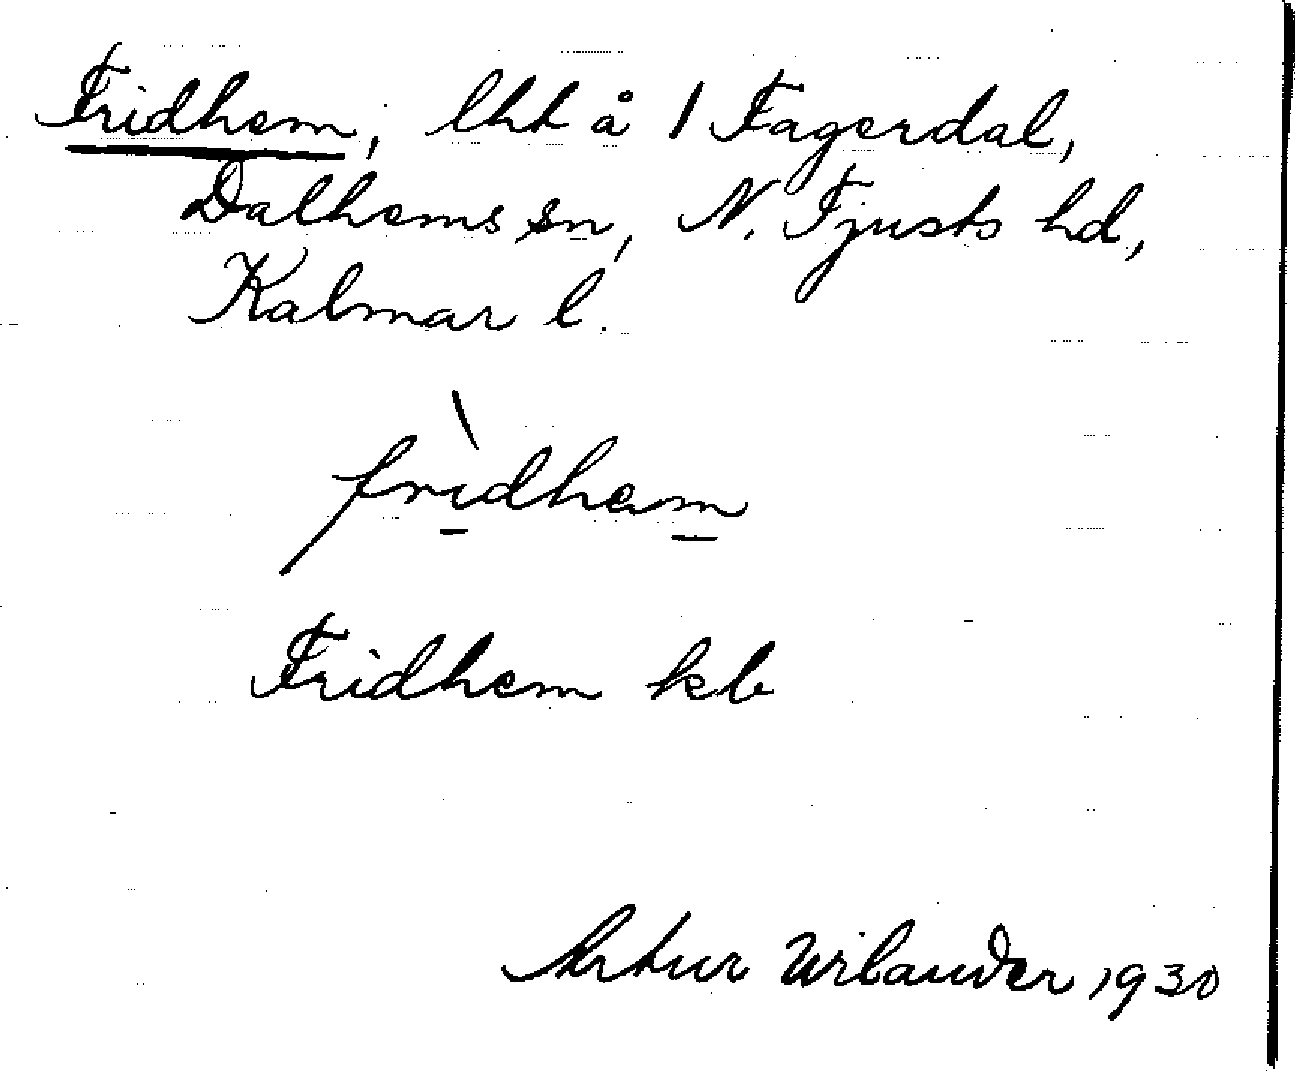 Fridhem, lht å 1 Fagerdal,
Dalhems sn, N. Tjusts hd,
Kalmar l.
frìdhem
Fridhem kb
Artur Wilander 1930